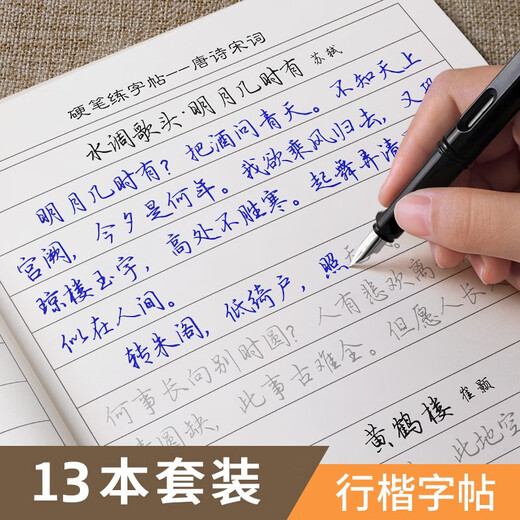 硬笔练字帖---唐诗宋词
水调歌头·明月几时有 苏轼
明月几时有？把酒问青天。不知天上
宫阙，今夕是何年。我欲乘风归去，又恐
琼楼玉宇，高处不胜寒。起舞弄清
似在人间。
转朱阁，低绮户，照
何事长向别时圆？人有悲欢离
圆缺，此事古难全。但愿人长
黄鹤楼 崔颢
此地空
13本套装
行楷字帖